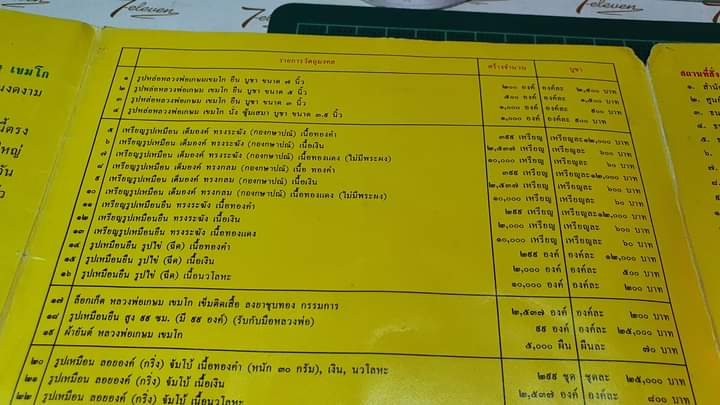 7eleven
7eleven
เขมโก
งดงาม
นี้ตรง
ใหญ่
รายการวัตถุมงคล สร้างจำนวน บูชา
๑ รูปหล่อหลวงพ่อเกษมเขมโก ยืน บูชา ขนาด ๙ นิ้ว ๒๐๐ องค์ องค์ละ ๒,๕๐๐ บาท
๒ รูปหล่อหลวงพ่อเกษมเขมโก ยืน บูชา ขนาด ๕ นิ้ว ๕๐๐ องค์ องค์ละ ๑,๕๐๐ บาท
๓ รูปหล่อหลวงพ่อเกษมเขมโก ยืน บูชา ขนาด ๓ นิ้ว ๑,๐๐๐ องค์ องค์ละ บาท
๔ รูปหล่อหลวงพ่อเกษมเขมโก นั่ง ซุ้มเสมา บูชา ขนาด ๓.๕ นิ้ว ๑,๐๐๐ องค์ องค์ละ บาท
๕ เหรียญรูปเหมือน เต็มองค์ ทรงระฆัง (กองกษาปณ์) เนื้อทองคำ ๓๙๙ เหรียญ เหรียญละ ๑๒,๐๐๐ บาท
๖ เหรียญรูปเหมือน เต็มองค์ ทรงระฆัง (กองกษาปณ์) เนื้อเงิน ๒,๕๓๗ เหรียญ เหรียญละ บาท
๗ เหรียญรูปเหมือน เต็มองค์ ทรงระฆัง (กองกษาปณ์) เนื้อทองแดง (ไม่มีพระผง) ๑๐,๐๐๐ เหรียญ เหรียญละ ๖๐ บาท
๘ เหรียญรูปเหมือน เต็มองค์ ทรงกลม (กองกษาปณ์) เนื้อ ทองคำ ๓๙๙ เหรียญ เหรียญละ ๑๒,๐๐๐ บาท
๙ เหรียญรูปเหมือน เต็มองค์ ทรงกลม (กองกษาปณ์) เนื้อเงิน ๒,๕๓๗ เหรียญ เหรียญละ บาท
๑๐ เหรียญรูปเหมือน เต็มองค์ ทรงกลม (กองกษาปณ์) เนื้อทองแดง (ไม่มีพระผง) ๑๐,๐๐๐ เหรียญ เหรียญละ ๖๐ บาท
๑๑ เหรียญรูปเหมือนยืน ทรงระฆัง เนื้อทองคำ ๒๙๙ เหรียญ เหรียญละ ๑๒,๐๐๐ บาท
๑๒ เหรียญรูปเหมือนยืน ทรงระฆัง เนื้อเงิน เหรียญ เหรียญละ บาท
๑๓ เหรียญรูปเหมือนยืน ทรงระฆัง เนื้อทองแดง ๑๐,๐๐๐ เหรียญ เหรียญละ ๖๐ บาท
๑๔ รูปเหมือนยืน รูปไข่ (ฉีด) เนื้อทองคำ ๒๙๙ องค์ องค์ละ ๑๒,๐๐๐ บาท
๑๕ รูปเหมือนยืน รูปไข่ (ฉีด) เนื้อเงิน ๒,๐๐๐ องค์ องค์ละ ๕๐๐ บาท
๑๖ รูปเหมือนยืน รูปไข่ (ฉีด) เนื้อนวโลหะ ๑๐,๐๐๐ องค์ องค์ละ ๒๐๐ บาท
๑๗ ล็อกเก็ต หลวงพ่อเกษม เขมโก เข็มติดเสื้อ ลงยาชุบทอง กรรมการ ๒,๕๓๗ องค์ องค์ละ บาท
๑๘ รูปเหมือนยืน สูง ๙๙ ซม. (มี ๙๙ องค์) (รับกับมือหลวงพ่อ) ๙๙ องค์ องค์ละ ๒๕,๐๐๐ บาท
๑๙ ผ้ายันต์ หลวงพ่อเกษม เขมโก ๕,๐๐๐ ผืน ผืนละ ๗๐ บาท
๒๐ รูปเหมือน ลอยองค์ (กริ่ง) จัมโบ้ เนื้อทองคำ (หนัก ๓๐ กรัม), เงิน, นวโลหะ ๒๙๙ ชุด ชุดละ ๒๕,๐๐๐ บาท
๒๑ รูปเหมือน ลอยองค์ (กริ่ง) จัมโบ้ เนื้อเงิน ๒,๕๓๗ องค์ องค์ละ ๘๐๐ บาท
๒๒ รูปเหมือน ลอยองค์ (กริ่ง) จัมโบ้ เนื้อนวโลหะ
สถานที่สั่ง
๑.
๒.
๓.
๔.
๕.